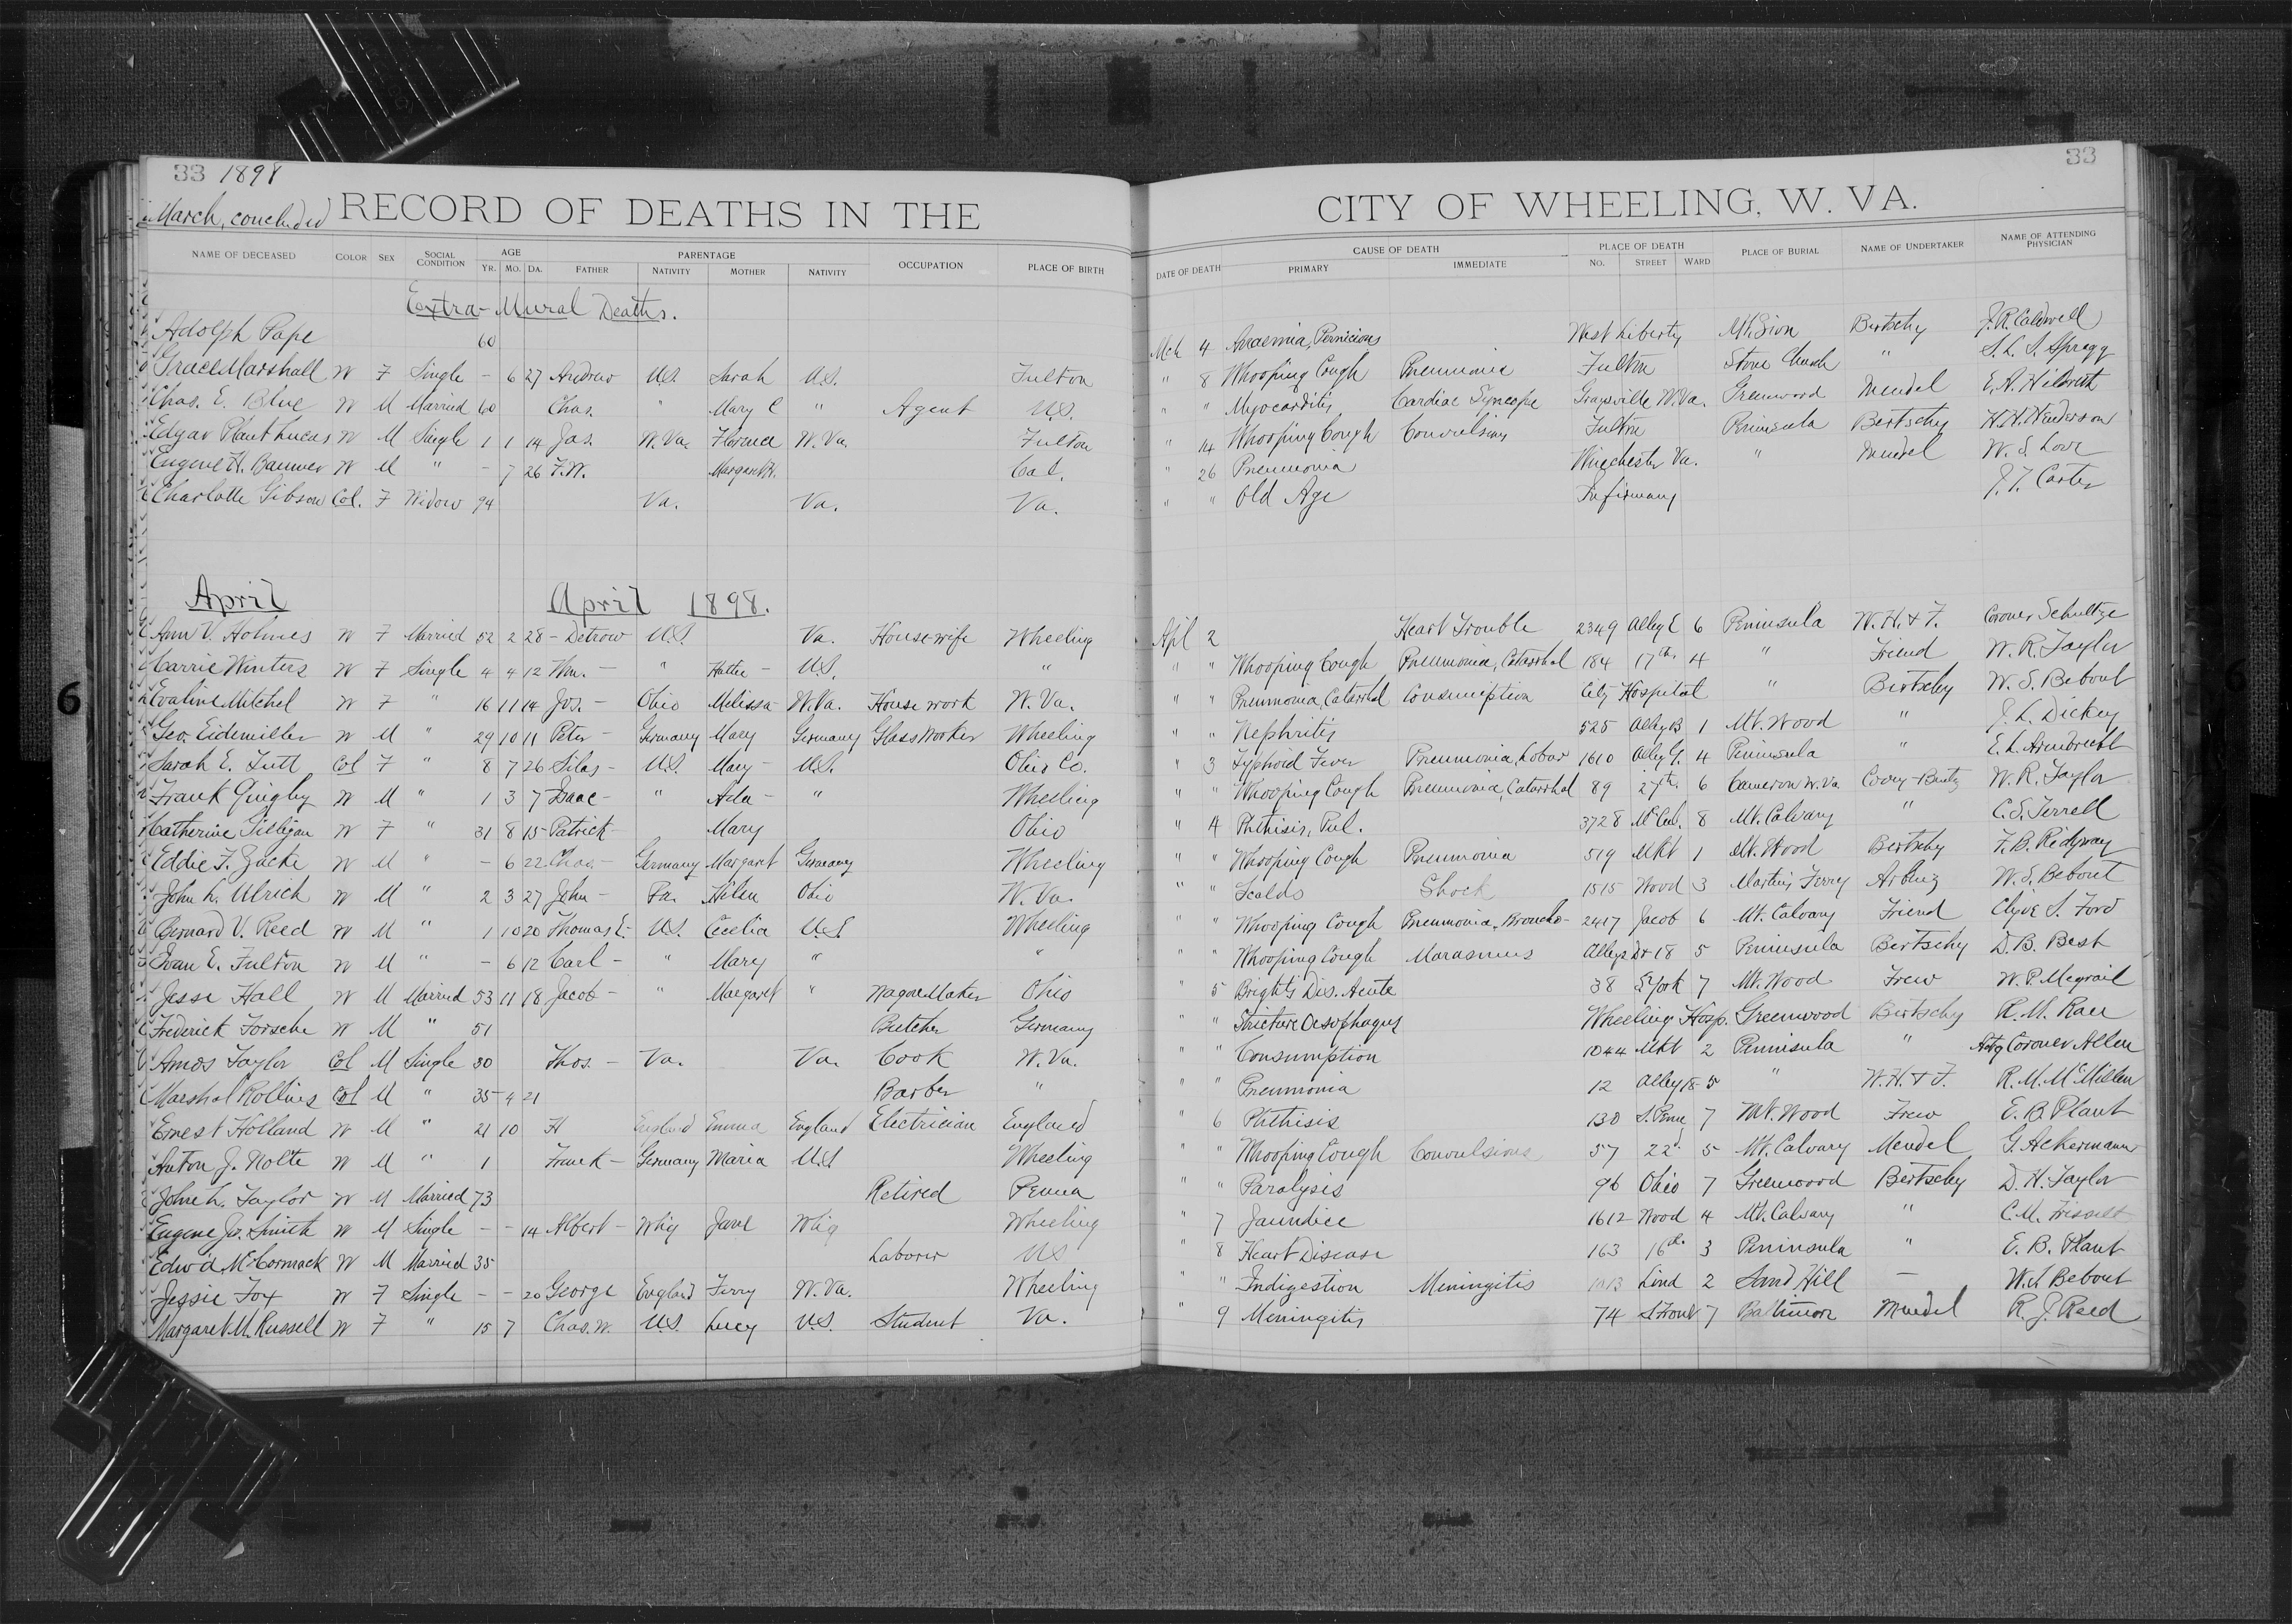 33 1898
33
March, concluded RECORD OF DEATHS IN THE CITY OF WHEELING, W. VA.
NAME OF DECEASED COLOR SEX SOCIAL CONDITION AGE YR. MO. DA. PARENTAGE FATHER NATIVITY MOTHER NATIVITY OCCUPATION PLACE OF BIRTH DATE OF DEATH CAUSE OF DEATH PRIMARY IMMEDIATE PLACE OF DEATH NO. STREET WARD PLACE OF BURIAL NAME OF UNDERTAKER NAME OF ATTENDING PHYSICIAN
Extra-Mural Deaths.
Adolph Pape 60 Mch 4 Anaemia, Pernicious West Liberty Mt. Zion Bertschy J. R. Caldwell
Grace Marshall W F Single - 6 27 Andrew U.S. Sarah U.S. Fulton " 8 Whooping Cough Pneumonia Fulton Stone Church " S. L. S. Spragg
Chas. E. Blue W M Married 60 Chas. " Mary C " Agent U.S. " " Myocarditis Cardiac Syncope Graysville W.Va. Greenwood Mendel E. A. Hildreth
Edgar Plant Lucas W M Single 1 1 14 Jas. W. Va. Florence W. Va. Fulton " 14 Whooping Cough Convulsions Fulton Peninsula Bertschy H. H. Henderson
Eugene H. Baumer W M " - 7 26 F. W. Margaret H. Cal. " 26 Pneumonia Winchester Va. " Mendel W. S. Love
Charlotte Gibson Col. F Widow 94 Va. Va. Va. " " Old Age Infirmary J. T. Carter
April April 1898.
Ann V. Holmes W F Married 52 2 28 - Detrow U.S. Va. Housewife Wheeling Apl 2 Heart Trouble 2349 Alley E 6 Peninsula W. H. & F. Coroner Schultze
Carrie Winters W F Single 4 4 12 Wm. - " Hattie - U.S. " " " Whooping Cough Pneumonia, Catarrhal 184 17th 4 " Friend W. R. Taylor
Evaline Mitchel W F " 16 11 14 Jos. - Ohio Melissa W.Va. House work W. Va. " " Pneumonia, Catarrhal Consumption City Hospital " Bertschy W. S. Bebout
Geo. Eidemiller W M " 29 10 11 Peter - Germany Mary Germany Glass Worker Wheeling " " Nephritis 525 Alley B 1 Mt. Wood " J. L. Dickey
Sarah E. Tutt Col F " 8 7 26 Silas - U.S. Mary - U.S. Ohio Co. " 3 Typhoid Fever Pneumonia, Lobar 1610 Alley G. 4 Peninsula " E. L. Armbrecht
Frank Gingly W M " 1 3 7 Isaac - " Ada - " Wheeling " " Whooping Cough Pneumonia, Catarrhal 89 27th 6 Cameron W. Va. W. R. Taylor
Catherine Gilligan W F " 31 8 15 Patrick - Mary Ohio " 4 Phthisis, Pul. 3728 McCul. 8 Mt. Calvary " C. S. Terrell
Eddie F. Zacke W M " - 6 22 Chas. - Germany Margaret Germany Wheeling " " Whooping Cough Pneumonia 519 Mkt 1 Mt. Wood Bertschy F. B. Ridgway
John L. Ulrich W M " 2 3 27 John - Pa. Helen Ohio W. Va. " " Scalds Shock 1515 Wood 3 Martins Ferry Arbenz W. S. Bebout
Bernard V. Reed W M " 1 10 20 Thomas E. - U.S. Cecelia U.S. Wheeling " " Whooping Cough Pneumonia, Broncho- 2417 Jacob 6 Mt. Calvary Friend Clyde S. Ford
Ivan E. Fulton W M " - 6 12 Carl - " Mary " " " " Whooping Cough Marasmus Alley 18 5 Peninsula Bertschy D. B. Best
Jesse Hall W M Married 53 11 18 Jacob - " Margaret " Wagon Maker Ohio " 5 Brights Dis. Acute 38 S. York 7 Mt. Wood Frew W. P. Megrail
Frederick Forsche W M " 51 Butcher Germany " " Stricture Oesophagus Wheeling Hosp. Greenwood Bertschy
Amos Taylor Col M Single 30 Thos. - Va. Va. Cook W. Va. " " Consumption 1044 Mkt 2 Peninsula " Actg Coroner Allen
Marshal Rollins Col M " 35 4 21 Barber " " " Pneumonia 12 Alley 18 5 " W. H. & F. R. M. McMillen
Ernest Holland W M " 21 10 H England Emma England Electrician England " 6 Phthisis 130 S. Penn 7 Mt. Wood Frew E. B. Plant
Anton J. Nolte W M " 1 Frank - Germany Maria U.S. Wheeling " " Whooping Cough Convulsions 57 22d 5 Mt. Calvary Mendel G. Ackermann
John L. Taylor W M Married 73 Retired Penna " " Paralysis 96 Ohio 7 Greenwood Bertschy D. H. Taylor
Eugene Jos. Smith W M Single - - 14 Albert - Whg Jane Whg Wheeling " 7 Jaundice 1612 Wood 4 Mt. Calvary " C. M. Frissell
Edw'd McCormack W M Married 35 Laborer US " 8 Heart Disease 163 16th 3 Peninsula " E. B. Plant
Jessie Fox W F Single - - 20 George England W. Va. Wheeling " " Indigestion Meningitis 1013 Lind 2 Sand Hill - W. S. Bebout
Margaret M. Russell W F " 15 7 Chas. W. U.S. Lucy U.S. Student Va. " 9 Meningitis 74 S. Front 7 Baltimore Mendel R. J. Reed
6